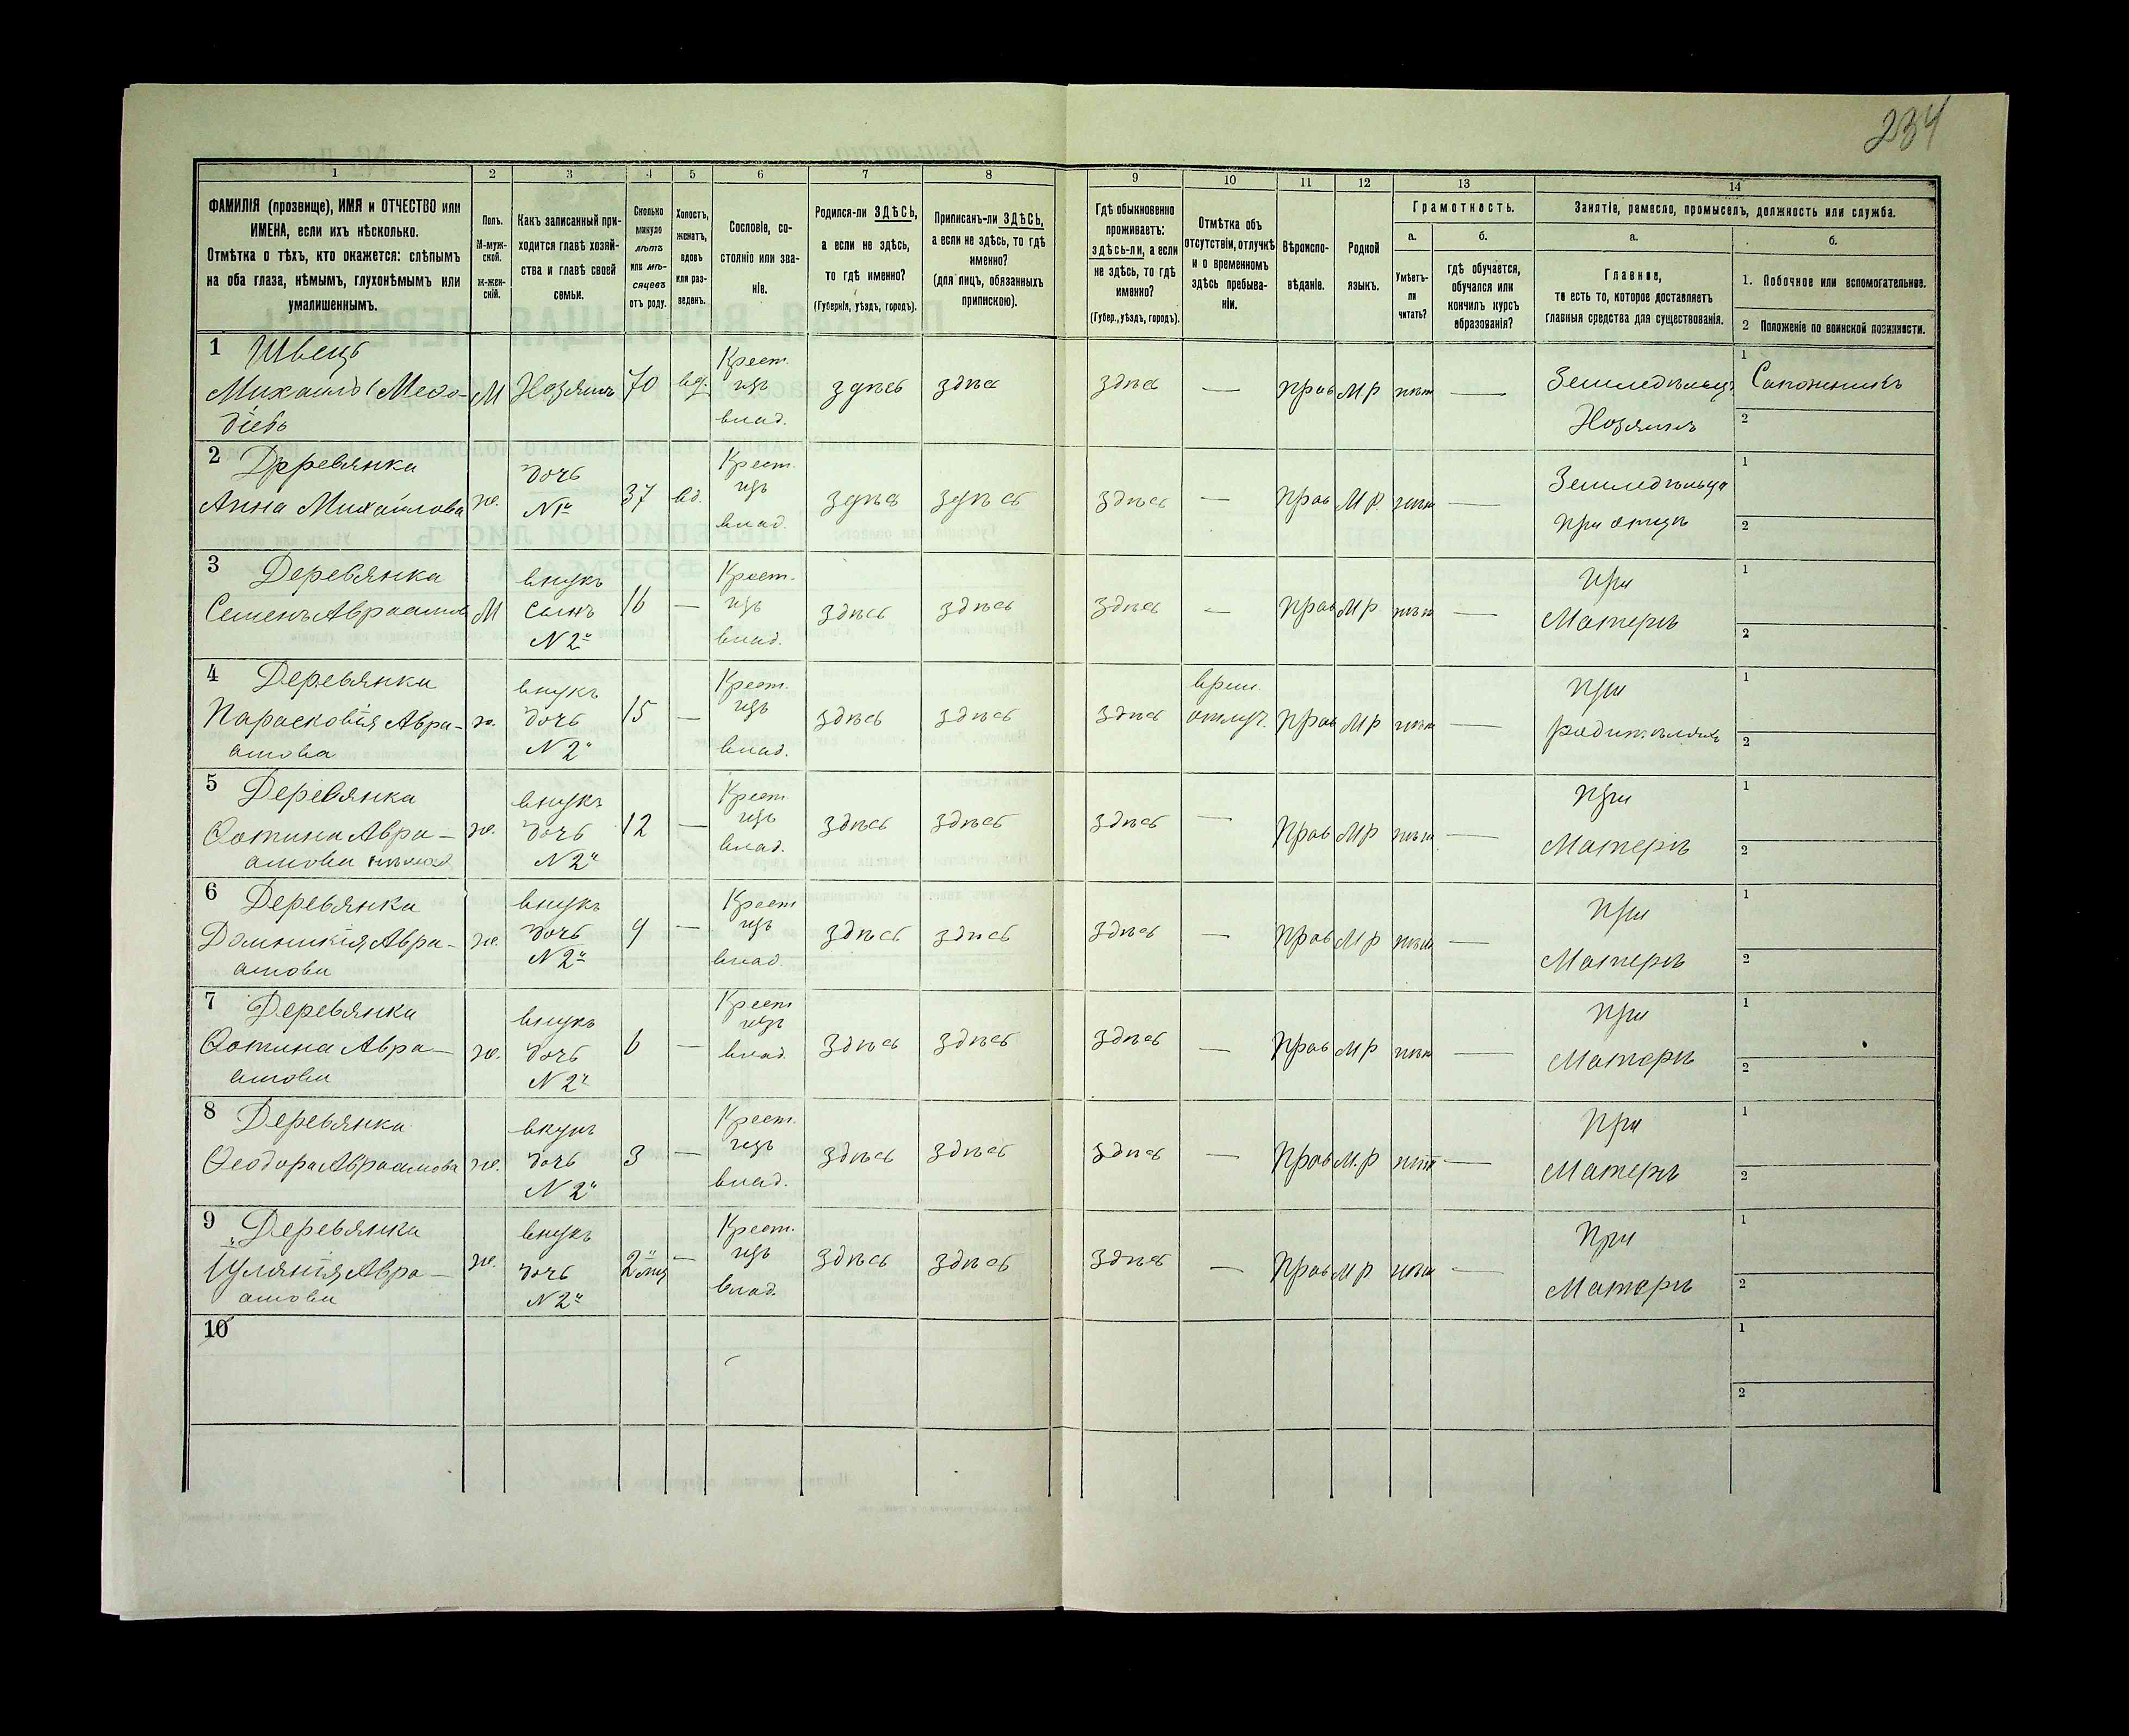 234
1 2 3 4 5 6 7 8 9 10 11 12 13 14
ФАМИЛІЯ (прозвище), ИМЯ и ОТЧЕСТВО или
ИМЕНА, если ихъ нѣсколько.
Отмѣтка о тѣхъ, кто окажется: слѣпымъ
на оба глаза, нѣмымъ, глухонѣмымъ или
умалишеннымъ.
Полъ.
М-муж-
ской.
ж-жен-
скій.
Какъ записанный при-
ходится главѣ хозяй-
ства и главѣ своей
семьи.
Сколько
минуло
лѣтъ
или мѣ-
сяцевъ
отъ роду.
Холостъ,
женатъ,
вдовъ
или раз-
веденъ.
Сословіе, со-
стояніе или зва-
ніе.
Родился-ли ЗДѢСЬ,
а если не здѣсь,
то гдѣ именно?
(Губернія, уѣздъ, городъ).
Приписанъ-ли ЗДѢСЬ,
а если не здѣсь, то гдѣ
именно?
(для лицъ, обязанныхъ
припискою).
Гдѣ обыкновенно
проживаетъ:
здѣсь-ли, а если
не здѣсь, то гдѣ
именно?
(Губер., уѣздъ, городъ).
Отмѣтка объ
отсутствіи, отлучкѣ
и о временномъ
здѣсь пребыва-
ніи.
Вѣроиспо-
вѣданіе.
Родной
языкъ.
Грамотность.
а.
Умѣетъ-
ли
читать?
б.
гдѣ обучается,
обучался или
кончилъ курсъ
образованія?
Занятіе, ремесло, промыселъ, должность или служба.
а.
Главное,
то есть то, которое доставляетъ
главныя средства для существованія.
б.
1. Побочное или вспомогательное.
2 Положеніе по воинской повинности.
1 Швецъ
Михаилъ Мефо-
діевъ
М Хозяинъ 70 вд.
Крест.
изъ
влад.
здѣсь здѣсь здѣсь — прав М р нѣт —
Земледѣлецъ
Хозяинъ
1 Сапожникъ
2
2 Дрревянка
Анна Михайлова
ж.
дочь
N 1й
37 вд.
Крест.
изъ
влад.
здѣсь здѣсь здѣсь — прав М р. нѣт —
Земледѣльца
при отцѣ
1
2
3 Деревянка
Семенъ Авраамов
М
внукъ
сынъ
N 2й
16 —
Крест.
изъ
влад.
здѣсь здѣсь здѣсь — прав М р нѣт —
При
Матерѣ
1
2
4 Деревянка
Парасковія Авра-
амова
ж.
внукъ
дочь
N 2й
15 —
Крест.
изъ
влад.
здѣсь здѣсь здѣсь
врем.
отлуч.
прав М р нѣт —
при
1
2
5 Деревянка
Фотина Авра-
амова
ж.
внукъ
дочь
N 2й
12 —
Крест
изъ
влад.
здѣсь здѣсь здѣсь — прав М р нѣт —
При
Матерѣ
1
2
6 Деревянка
Домникія Авра-
амова
ж.
внукъ
дочь
N 2й
9 —
Крест
изъ
влад.
здѣсь здѣсь здѣсь — прав М р нѣт —
При
Матерѣ
1
2
7 Деревянка
Фотина Авра-
амова
ж.
внукъ
дочь
N 2й
6 —
Крест
изъ
влад.
здѣсь здѣсь здѣсь — прав М р нѣт —
При
Матерѣ
1
2
8 Деревянка
Феодора Авраамова
ж.
внукъ
дочь
N 2й
3 —
Крест.
изъ
влад.
здѣсь здѣсь здѣсь — прав М. р нѣт —
При
Матерѣ
1
2
9 Деревянка
Іуліанія Авра-
амова
ж.
внукъ
дочь
N 2й
2 —
Крест.
изъ
влад.
здѣсь здѣсь здѣсь — прав М р нѣт —
При
Матерѣ
1
2
10
1
2